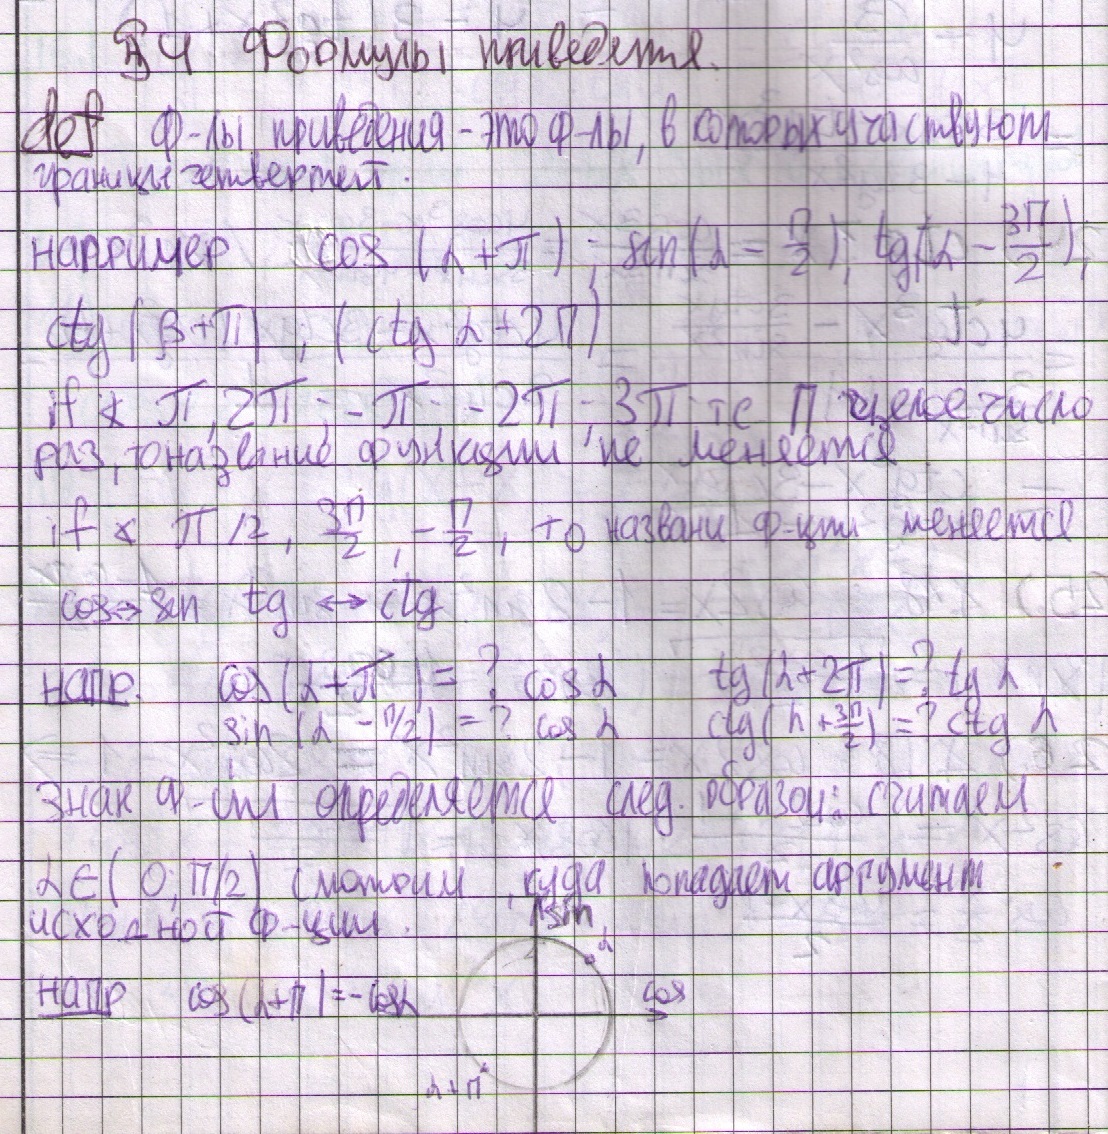 §4 Формулы приведения.
def Ф-лы приведения - это ф-лы, в которых участвуют
границы четвертей.
например cos (α + π) ; sin(α - π/2), tg(α - 3π/2),
ctg (β + π) ; (ctg α + 2π)
if ∢ π, 2π ; -π ; -2π ; 3π т.е. π целое число
раз, то название функции не меняется
if ∢ π/2, 3π/2, -π/2, то названи ф-ции меняется
cos↔sin tg ↔ ctg
напр. cos(α + π) = ? cos α tg(α + 2π) = ? tg α
sin (α - π/2) = ? cos α ctg(α + 3π/2) = ? ctg α
Знак ф-ции определяется след. образом: считаем
α ∈ (0; π/2) смотрим, куда попадает аргумент
исходной ф-ции.
sin
α
напр cos(α+π) = -cosα
cos
α + π